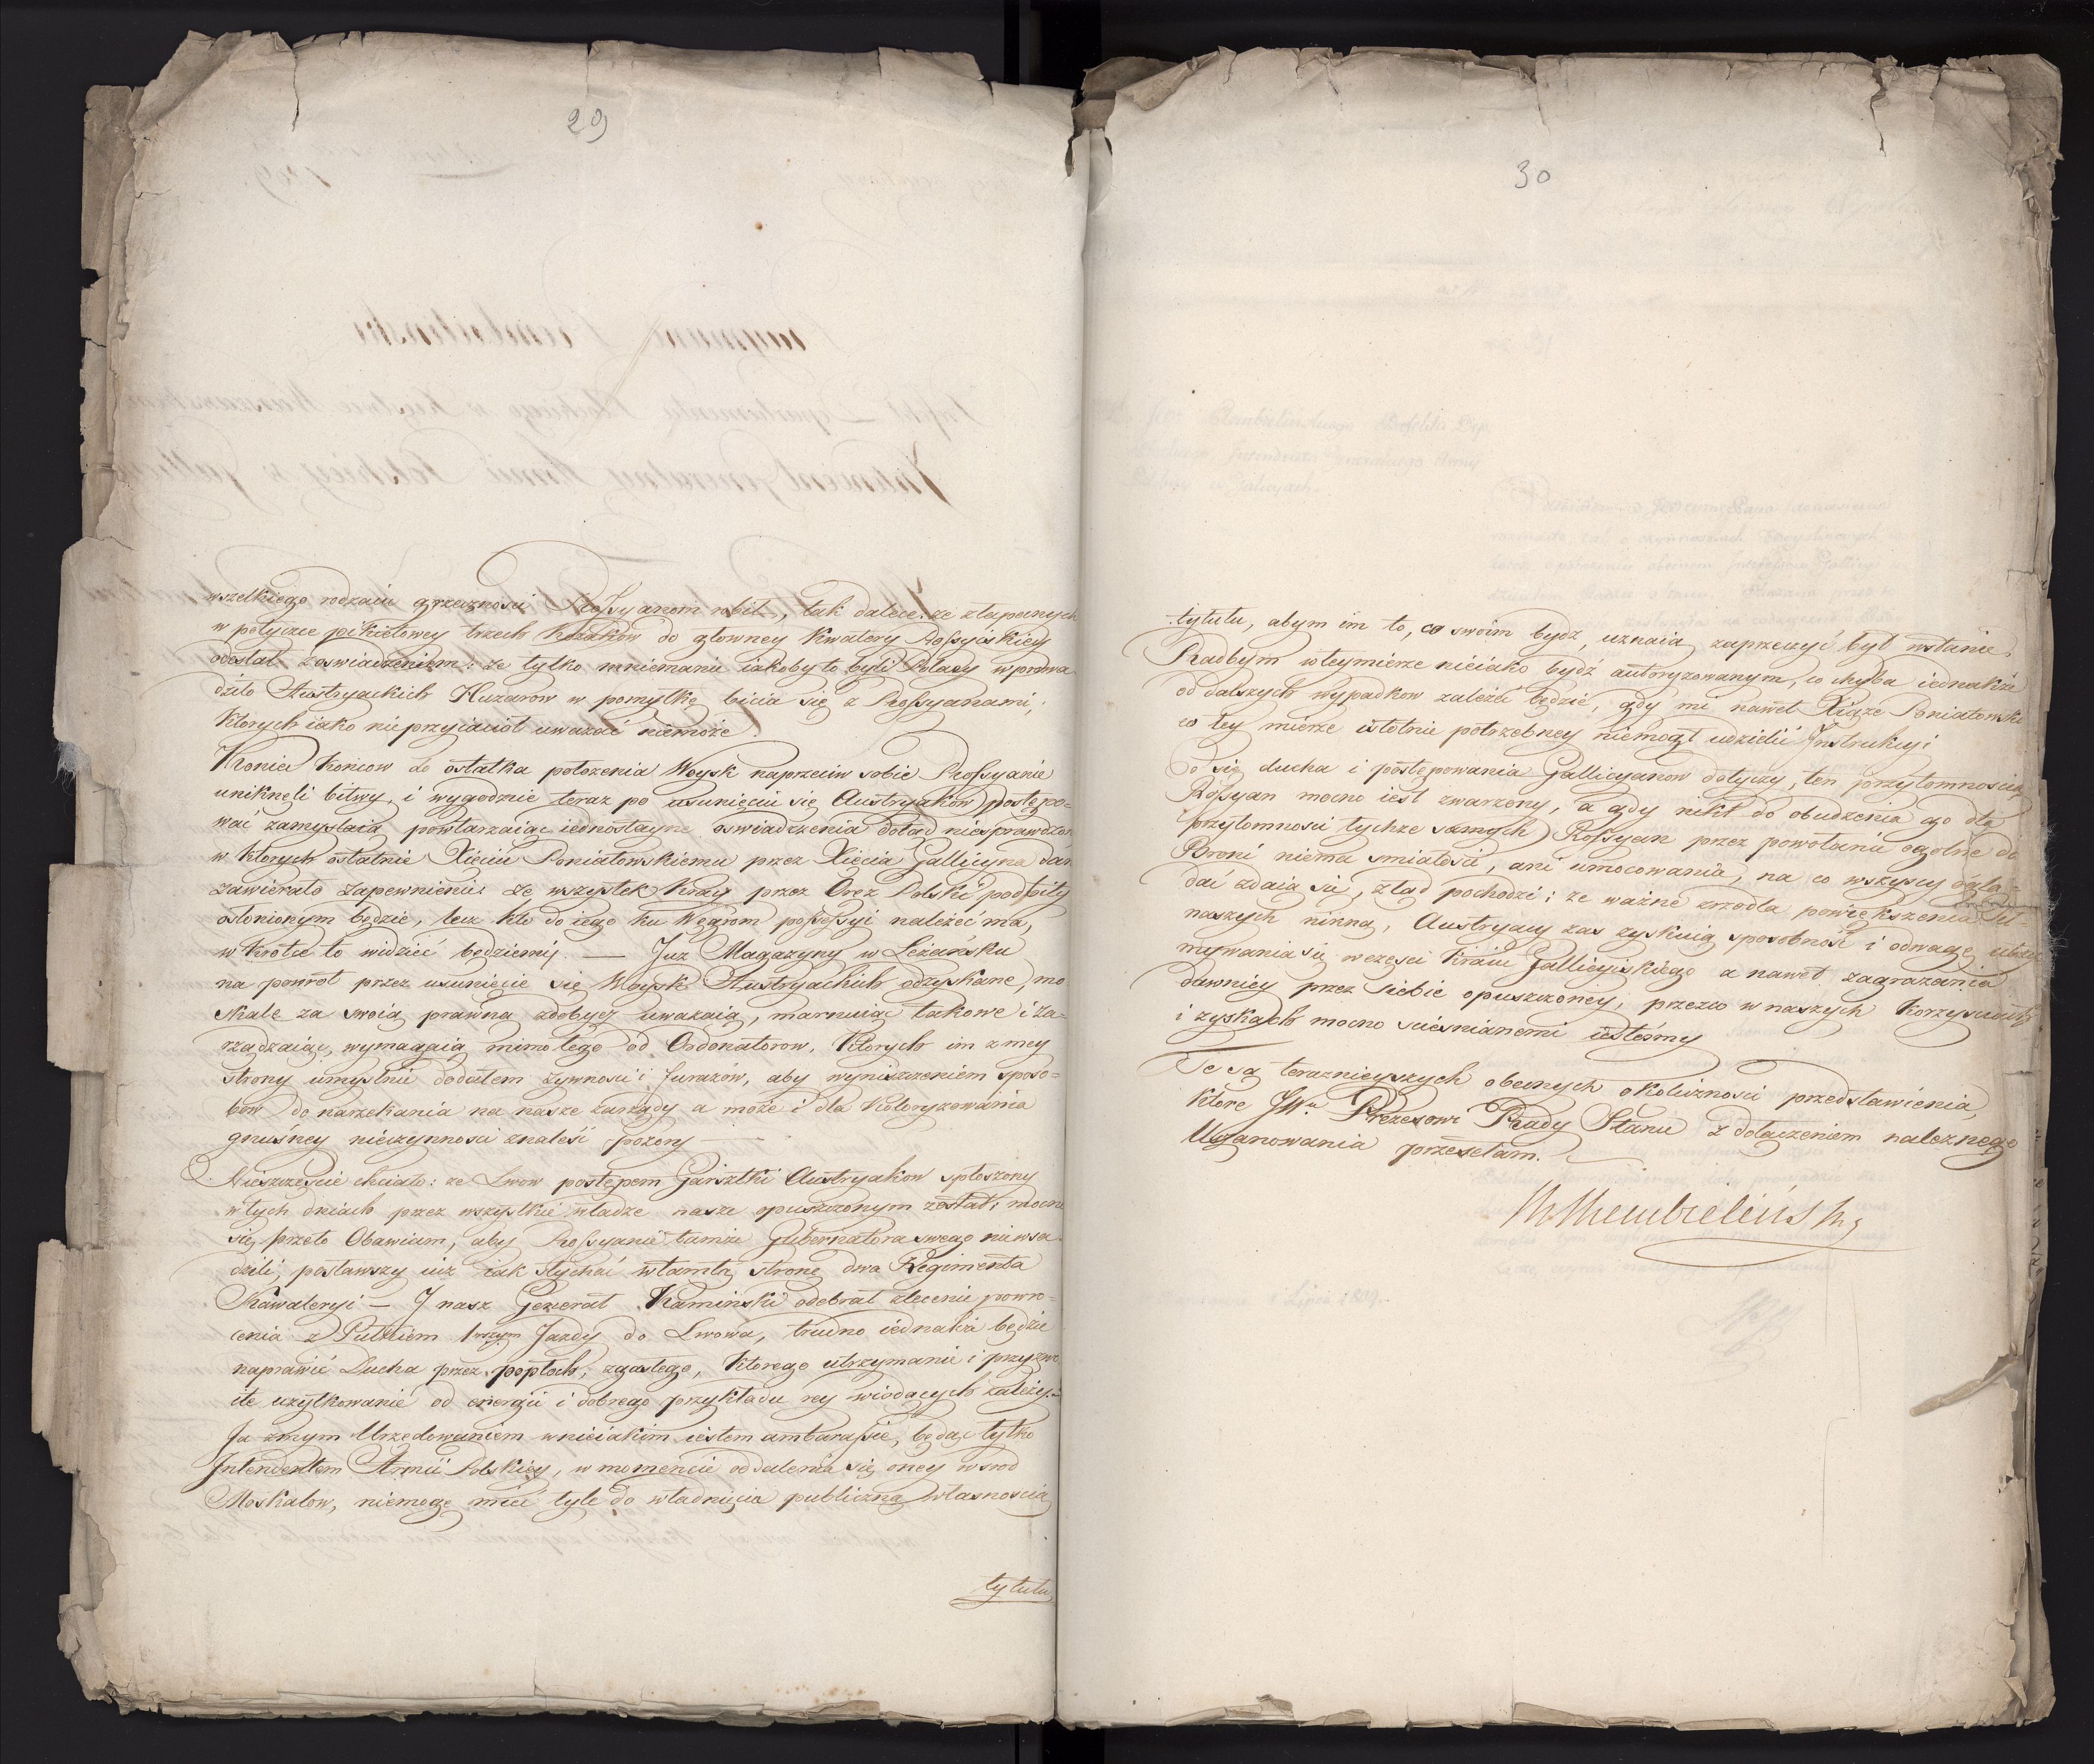 29
wszelkiego rodzaiu grzeczności Rossyanom robił, tak dalece: że złapanych
w potyczce pikietowey trzech Kozaków do główney Kwatery Rossyiskiey
odesłał zoswiadczeniem: że tylko mniemanie iakoby to byli Polacy wprowa
dziło Austryackich Huzarow w pomyłkę bicia się z Rossyanami,
ktorych iako nieprzyiacioł uważać niemoże.
Koniec końcow do ostatka położenia Woysk naprzeciw sobie Rossyanie
uniknęli bitwy, i wygodnie teraz po usunięciu się Austryaków postępo-
wać zamyslaią powtarzaiąc iednostayne oswiadczenia dotąd niesprawdzon
w ktorych ostatnie Xięciu Poniatowskiemu przez Xięcia Gallicyna dan
zawierało zapewnienie: że wszystek Kray przez Oręż Polski podbity
osłonionym będzie, lecz kto do iego ku Węgrom possessyi należeć ma,
w krotce to widzieć będziemy. — Już Magazyny w Leżańsku
na powrot przez usunięcie się Woysk Austryackich odzyskane, mo
skale za swoią prawną zdobycz uważaią, marnuiąc takowe i za-
rządzaiąc, wymagaią mimo tego od Ordonatorow, ktorych im z mey
strony umyslnie dodałem żywności i furażów, aby wyniszczeniem sposo-
bow do narzekania na nasze zarządy a może i dla koloryzowania
gnuśney nieczynności znaleść pozory —
Nieszczęście chciało: że Lwow postępem Garsztki Austryakow spłoszony
w tych dniach przez wszystkie władze nasze opuszczonym został; mocno
się przeto obawiam, aby Rossyanie tamże Gubernatora swego niewsa
dzili, posławszy iuż iak słychać w tamtą stronę dwa Regimenta
Kawaleryi — J nasz Generał Kamiński odebrał zlecenie powro-
cenia z Pułkiem 1wszym Jazdy do Lwowa, trudno iednakże będzie
naprawić Ducha przez popłoch, zgasłego, ktorego utrzymanie i przyzwo
ite użytkowanie od energii i dobrego przykładu rey wiodących zależy.—
Ja z mym Urzędowaniem w nieiakim iestem ambarassie, będąc tylko
Intendentem Armii Polskiey, w momencie oddalenia się oney wsrod
Moskalow, niemogę mieć tyle do władnięcia publiczną własnością
tytułu
30
tytułu, abym im to, co swoim bydz, uznaią zaprzeczyć był wstanie.
Radbym w teymierze nieiako bydź autoryzowanym, co chyba iednakże
od dalszych wypadkow zależeć będzie, gdy mi nawet Xiąże Poniatowski
w tey mierze istotnie potrzebney niemogł udzielić Instrukcyi
Co się ducha i postępowania Gallicyanow dotyczy, ten przytomnością
Rossyan mocno iest zwarzony, a gdy nikt do obudzenia go dla
przytomności tychże samych Rossyan przez powołanie ogolne do
Broni niema smiałości, ani umocowania, na co wszyscy oglą-
dać zdaią się, ztąd pochodzi: że ważne zrzodła powiększenia sił
naszych nikną, Austryacy zas zyskuią sposobność i odwagę utrzy
mywania się w części Kraiu Gallicyiskiego a nawet zagrażania
dawniey przez siebie opuszczoney, przezco w naszych korzysciach
i zyskach mocno scieśnianemi iestesmy
Te są teraznieyszych obecnych okoliczności przedstawienia,
które JWu Prezesowi Rady Stanu z dołączeniem należnego
Uszanowania przesełam.
Rembieliński